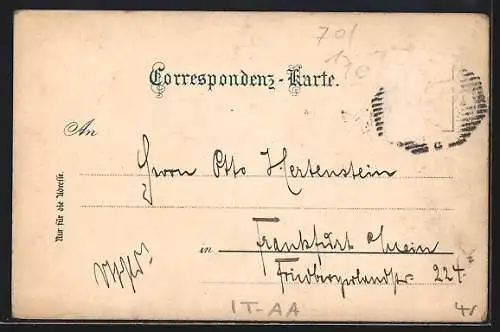 701
170
Correspondenz-Karte.
An
Herrn Otto Hertenstein
Nur für die Adresse.
in Frankfurt Main
Friedbergerlandstr 224.
IT-AA